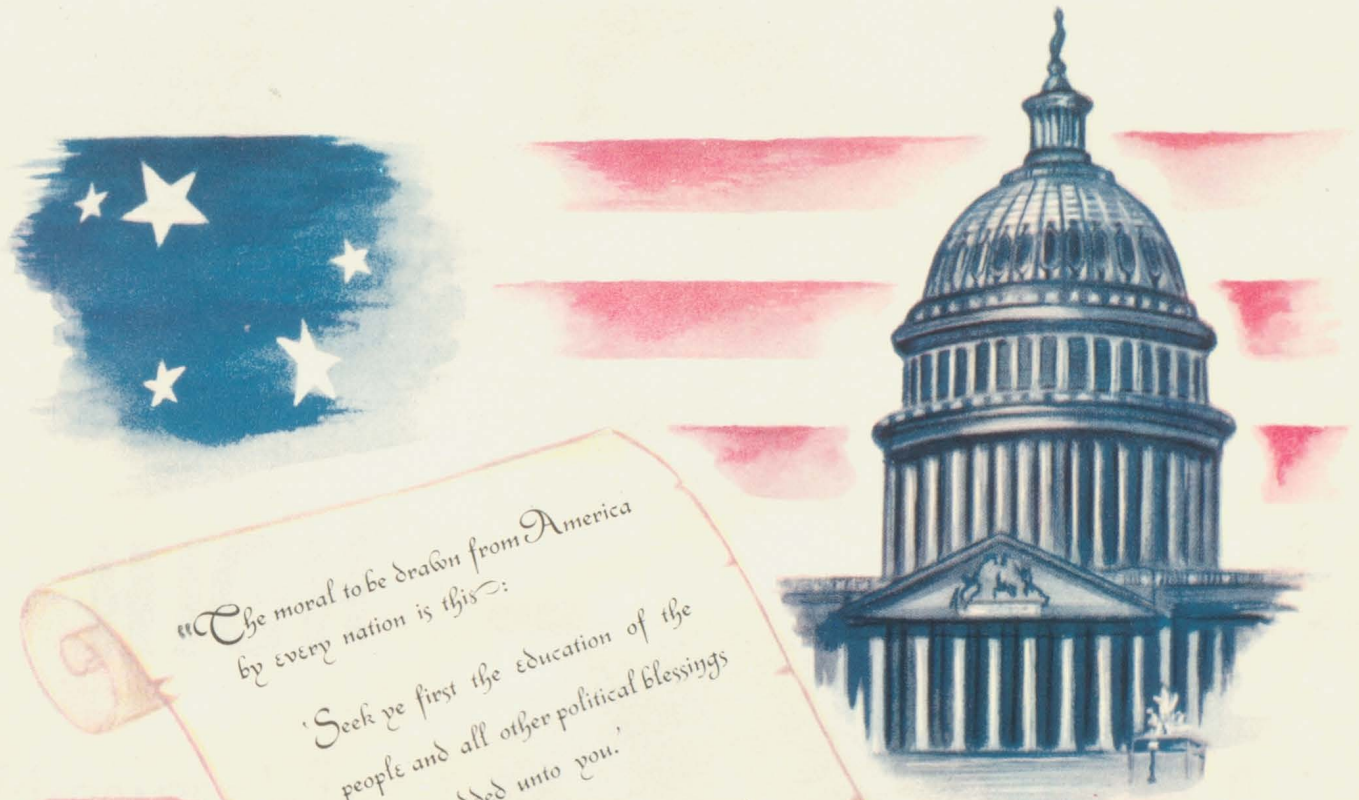 “The moral to be drawn from America
by every nation is this:
‘Seek ye first the education of the
people and all other political blessings
unto you.’